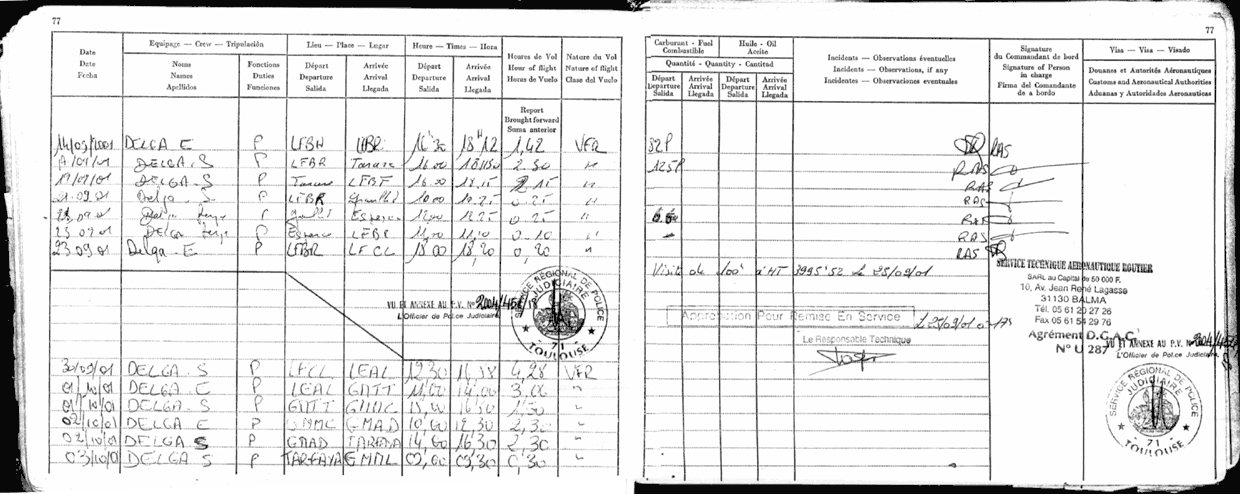 77
Date
Date
Fecha
Equipage — Crew — Tripulación
Noms
Names
Apellidos
Fonctions
Duties
Funciones
Lieu — Place — Lugar
Départ
Departure
Salida
Arrivée
Arrival
Llegada
Heure — Times — Hora
Départ
Departure
Salida
Arrivée
Arrival
Llegada
Heures de Vol
Hour of flight
Horas de Vuelo
Nature du Vol
Nature of flight
Clase del Vuelo
Report
Brought forward
Suma anterior
DELGA E P LFBH 16 30 18 12 1,42 VFR
DELGA. S P LFBR 16.00 2 30 "
19/09/01 DELGA. S P LFBF 16.00 18.15 2 15 "
21.09.01 Delga S. P LFBR 10 00 10.25 0.25 "
Delga 12.25 0.25 "
23 09 01 DELGA P LFBR 0.10 "
23.09.01 Delga. E P LFBR LFCL 18 00 18,20 0,20 "
VU ET ANNEXE AU P.V. N°
L'Officier de Police Judiciaire,
SERVICE RÉGIONAL DE POLICE JUDICIAIRE
71
TOULOUSE
30/09/01 DELGA. S P LFCL LEAL 12 30 4,28 VFR
01/10/01 DELGA. E P LEAL GMTT 11,00 14,00 3,00 "
01/10/01 DELGA. S P GMTT GMMC 15,00 16,30 1,30 "
02/10/01 DELGA E P GMMC GMAD 10,00 12,30 2,30 "
02/10/01 DELGA S P GMAD TARFAYA 14,00 16,30 2,30 "
03/10/01 DELGA S P TARFAYA GMML 09,00 09,30 0,30 "
77
Carburant - Fuel
Combustible
Huile - Oil
Aceite
Quantité - Quantity - Cantitad
Départ
Departure
Salida
Arrivée
Arrival
Llegada
Départ
Departure
Salida
Arrivée
Arrival
Llegada
Incidents — Observations éventuelles
Incidents — Observations, if any
Incidentes — Observaciones eventuales
Signature
du Commandant de bord
Signature of Person
in charge
Firma del Comandante
de a bordo
Visa — Visa — Visado
Douanes et Autorités Aéronautiques
Customs and Aeronautical Authorities
Aduanas y Autoridades Aeronauticas
82P RAS
125P RAS
RAS
RAS
RAS
RAS
RAS
Visite de 100h 3995'52 Le 25/09/01
SERVICE TECHNIQUE AERONAUTIQUE ROUTIER
SARL au Capital de 50 000 F.
10, Av. Jean René Lagasse
31130 BALMA
Tél. 05 61 20 27 26
Fax 05 61 54 29 76
Agrément D.G.A.C.
N° U 287
Approbation Pour Remise En Service
Le Responsable Technique
VU ET ANNEXE AU P.V. N°
L'Officier de Police Judiciaire,
SERVICE RÉGIONAL DE POLICE JUDICIAIRE
71
TOULOUSE